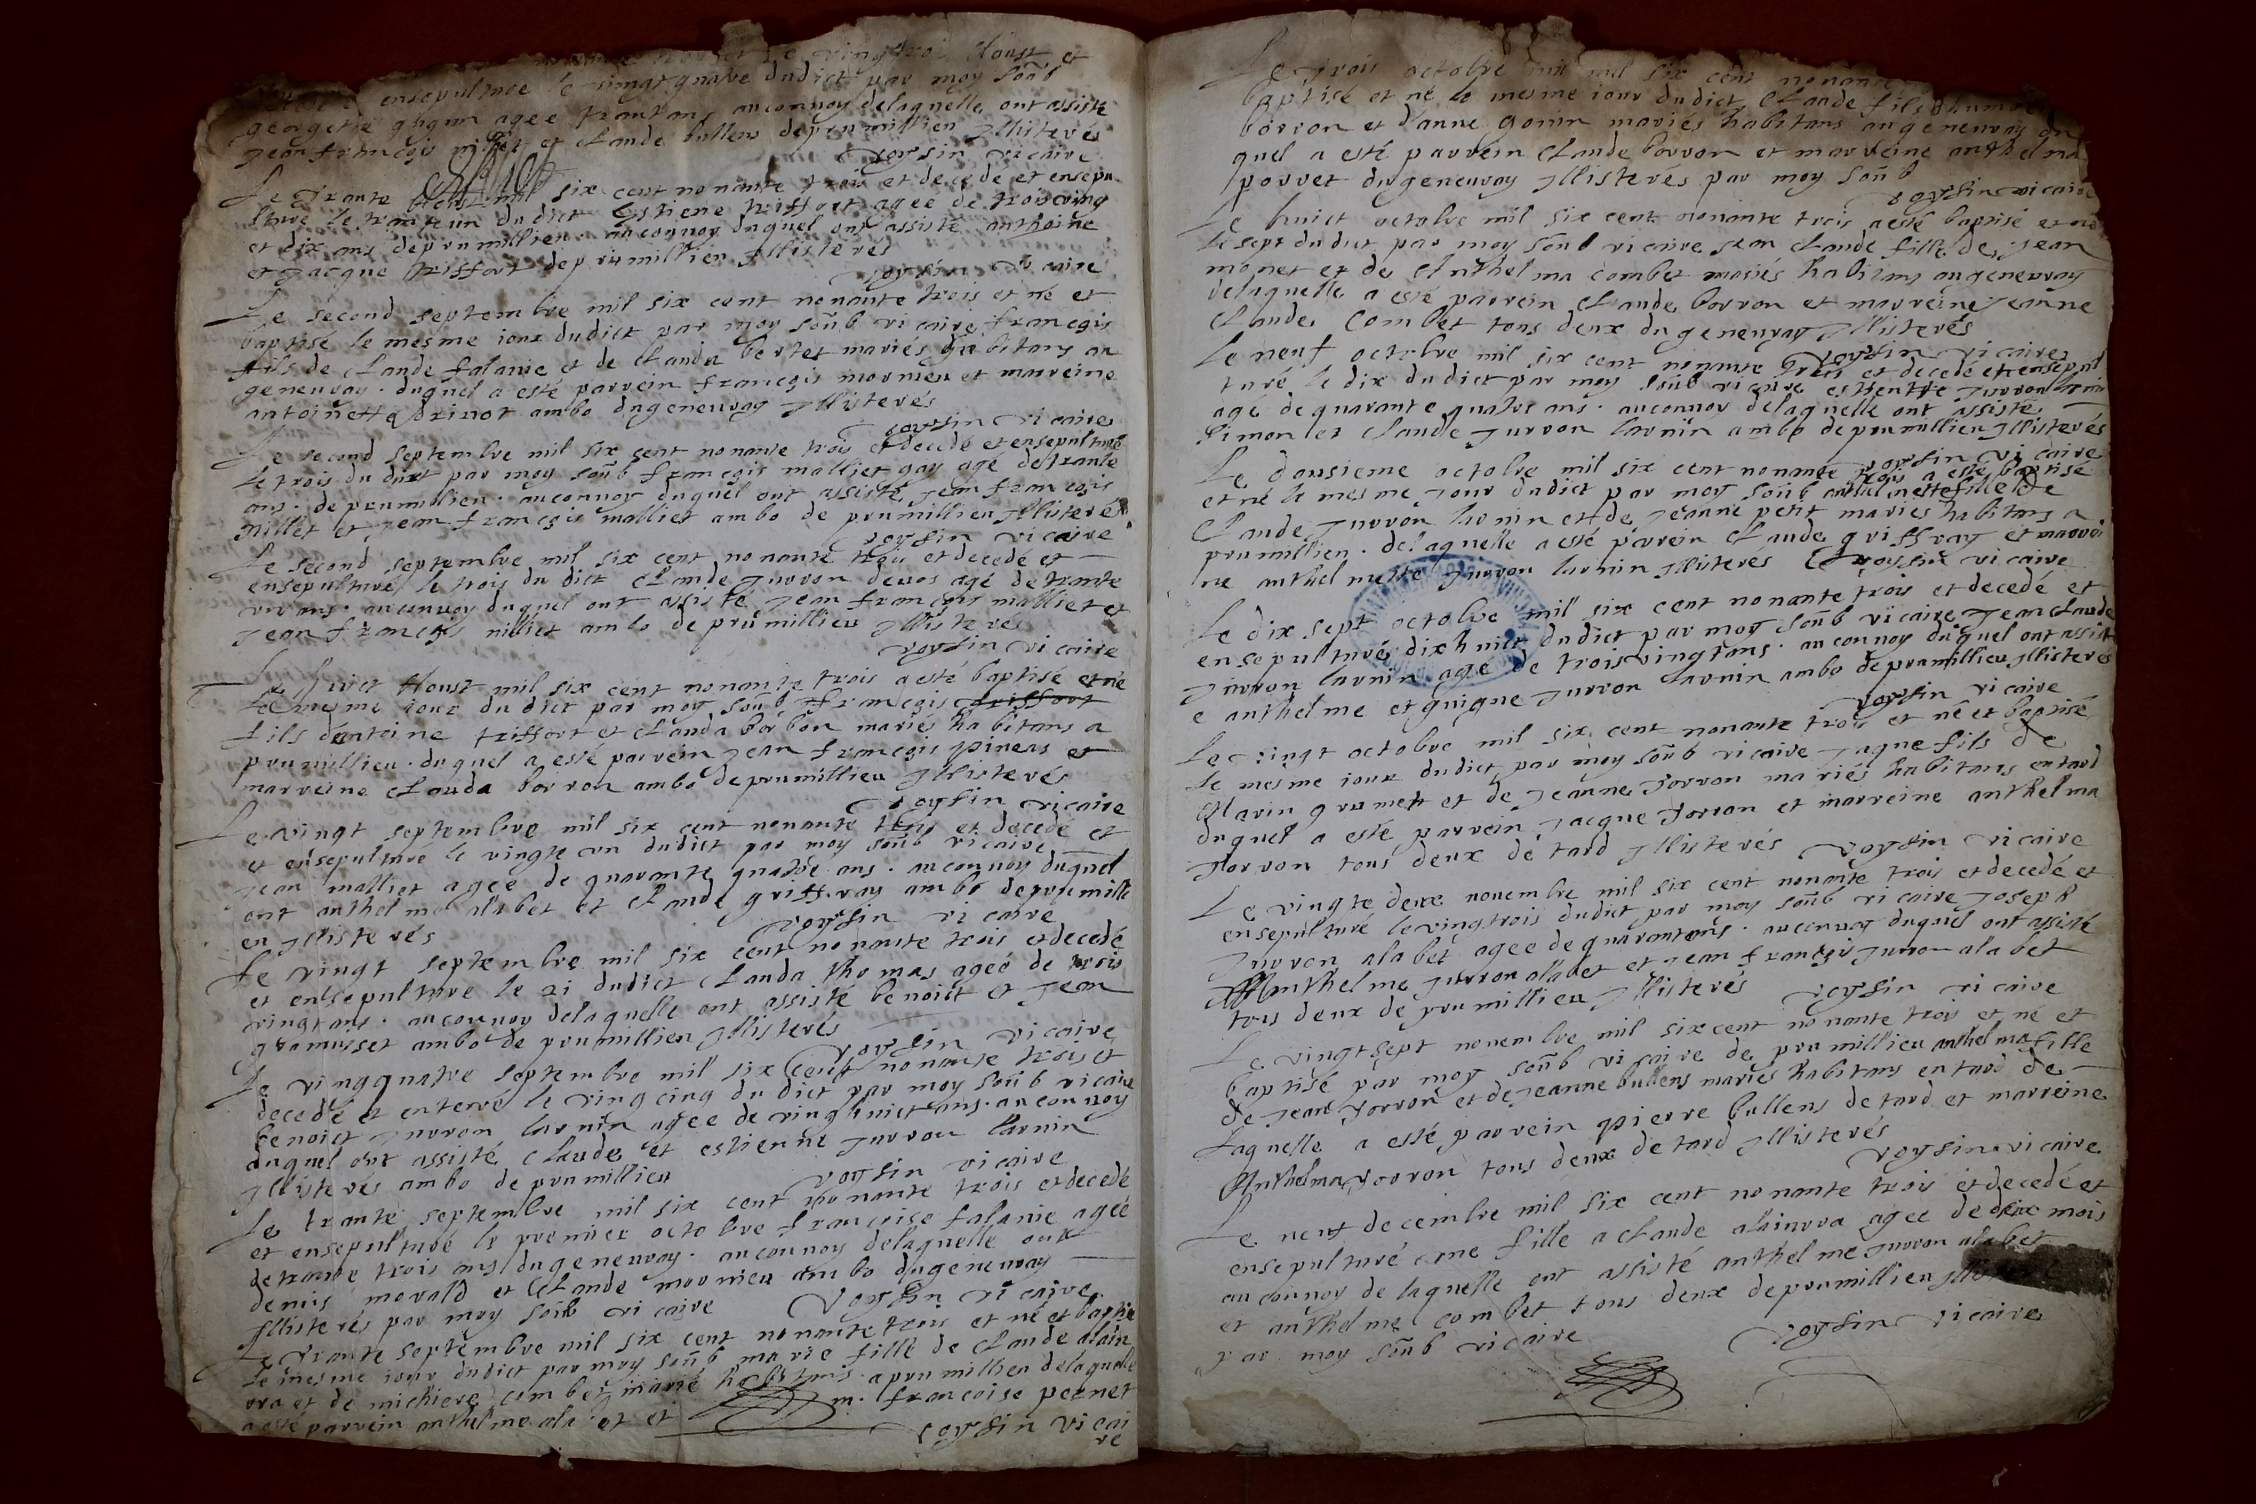 le vingt trois Aoust et
ensepulturee le vingt quatre dudict par moy soub
georgette agee trant ans au convoy delaquelle ont assiste
Jean françois millet et Claude bullens de prumillien Illisterés
voysin vicaire
Le trante Aoust mil six cent nonante trois et decede et ensepu
lture le trante un dudict Estiene triffort agee de trois ving
et dix ans de prumillien. au convoy duquel ont assisté anthoine
et Jacque triffort de prumillien Illisterés
voysin vicaire
Le second septembre mil six cent nonante trois et né et
baptisé le mesme iour dudict par moy soub vicaire françois
fils de Claude falanie et de Clauda bertet mariés habitans au
genevray. duquel a esté parrein françois mornieu et marreine
antoinette drinot ambo du genevray Illisterés
voysin vicaire
Le second septembre mil six cent nonante trois et decede et ensepulturé
le trois du dict par moy soub françois malliet gay agé de trante
ans. de prumillien. au convoy duquel ont assisté Jean françois
millet et Jean françois malliet ambo de prumillien Illisterés
voysin vicaire
Le second septembre mil six cent nonante trois et decede et
ensepulturé le trois du dict Claude Jurron devos agé de trante
ans. au convoy duquel ont assisté Jean françois malliet et
Jean françois milliet ambo de prumillieu Illisterés
voysin vicaire
Le huict Aoust mil six cent nonante trois a esté baptisé et né
le mesme iour du dict par moy soub françois triffort
fils d'antoine triffort et Clauda borron mariés habitans a
prumillieu. duquel a esté parrein Jean françois pineas et
marreine Clauda borron ambo de prumillieu Illisterés
voysin vicaire
Le vingt septembre mil six cent nonante trois et decedé et
et ensepulturé le vingte un dudict par moy soub vicaire
Jean malliet agee de quarante quatre ans. au convoy duquel
ont anthelme alabet et Claude griffray ambo de prumilli
en Illisterés voysin vicaire
Le vingt septembre mil six cent nonante trois et decedé
et ensepulture le 21 dudict Clauda thomas ageé de trois
vingt ans. au convoy delaquelle ont assisté benoict et Jean
gramusset ambo de prumillien Illisterés
voysin vicaire
Le vingquatre septembre mil six cent nonante trois et
decedé et enterre le vingcinq du dict par moy soub vicaire
benoict Jurron larnin agee de vinghuict ans. au convoy
duquel ont assisté Claude et estienne Jurron larnin
Illisterés ambo de prumillieu voysin vicaire
Le trante septembre mil six cent nonante trois et decedé
et ensepulturé le premier octobre françoise falanie ageé
de trante trois ans du genevray. au convoy delaquelle ont
denis morald et Claude mornieu ambo du genevray
Illisterés par moy soub vicaire voysin vicaire
Le trante septembre mil six cent nonante trois et né et baptisé
le mesme iour dudict par moy soub marie fille de Claude alain
ora et de michiere combet marié habitans a prumillien delaquelle
a esté parrein anthelme ala et et m. francoise pernet
voysin vicai
re
Le trois octobre mil six cent nonante
baptisé et né le mesme iour dudict Claude fils
borron et d'anne gonin mariés habitans au genevray du
quel a esté parrein Claude borron et marreine anthelma
porret du genevray Illisterés par moy soub
voysin vicaire
Le huict octobre mil six cent nonante trois a esté baptisé et né
le sept du dict par moy soub vicaire Jean Claude fille de Jean
monet et de Anthelma combet mariés habitans au genevray
delaquelle a esté parrein Claude borron et marreine Jeanne
Claude Combet tous deux du genevray Illisterés
voysin vicaire
Le neuf octobre mil six cent nonante trois et decedé et ensepul
turé le dix du dict par moy soub vicaire Jurron larnin
agé de quarante quatre ans. au convoy delaquelle ont assisté
Simon et Claude Jurron larnin ambo de prumillieu Illisterés
voysin vicaire
Le dousieme octobre mil six cent nonante trois a esté baptisé
et né le mesme Jour dudict par moy soub anthelmette fille de
Claude Jurron larnin et de Jeanne petit mariés habitans a
prumillien. delaquelle a esté parrein Claude griffray et marrei
ne anthelmette Jurron larnin Illisterés voysin vicaire
Le dix sept octobre mil six cent nonante trois et decedé et
ensepulturé dixhuict dudict par moy soub vicaire Jean Claude
Jurron larnin agé de trois vingt ans. au convoy duquel ont assist
e anthelme et guigue Jurron larnin ambo de prumillieu Illisterés
voysin vicaire
Le vingt octobre mil six cent nonante trois et né et baptisé
le mesme iour dudict par moy soub vicaire Jaque fils de
Marin grumett et de Jeanne Jorron mariés habitans en tard
duquel a esté parrein Jacque Jorron et marreine anthelma
Jorron tous deux de tard Illisterés voysin vicaire
Le vingte deux novembre mil six cent nonante trois et decedé et
ensepulturé le vingtrois dudict par moy soub vicaire Joseph
Jurron alabet agee de quarant ans. au convoy duquel ont assisté
Anthelme Jurron allabet et Jean françois Juron alabet
tous deux de prumillieu Illisterés voysin vicaire
Le vingt sept novembre mil six cent nonante trois et né et
baptisé par moy soub vicaire de prumillieu anthelma fille
de Jean Jorron et de Jeanne bullens mariés habitans en tard de
laquelle a esté parrein pierre bullens de tard et marreine
Anthelma Jorron tous deux de tard Illisterés
voysin vicaire
Le neuf decembre mil six cent nonante trois et decedé et
ensepulturé une fille a Claude alainora agee de deux mois
au convoy de laquelle ont assisté anthelme Jurron alabet
et anthelme combet tous deux de prumillieu
par moy soub vicaire voysin vicaire